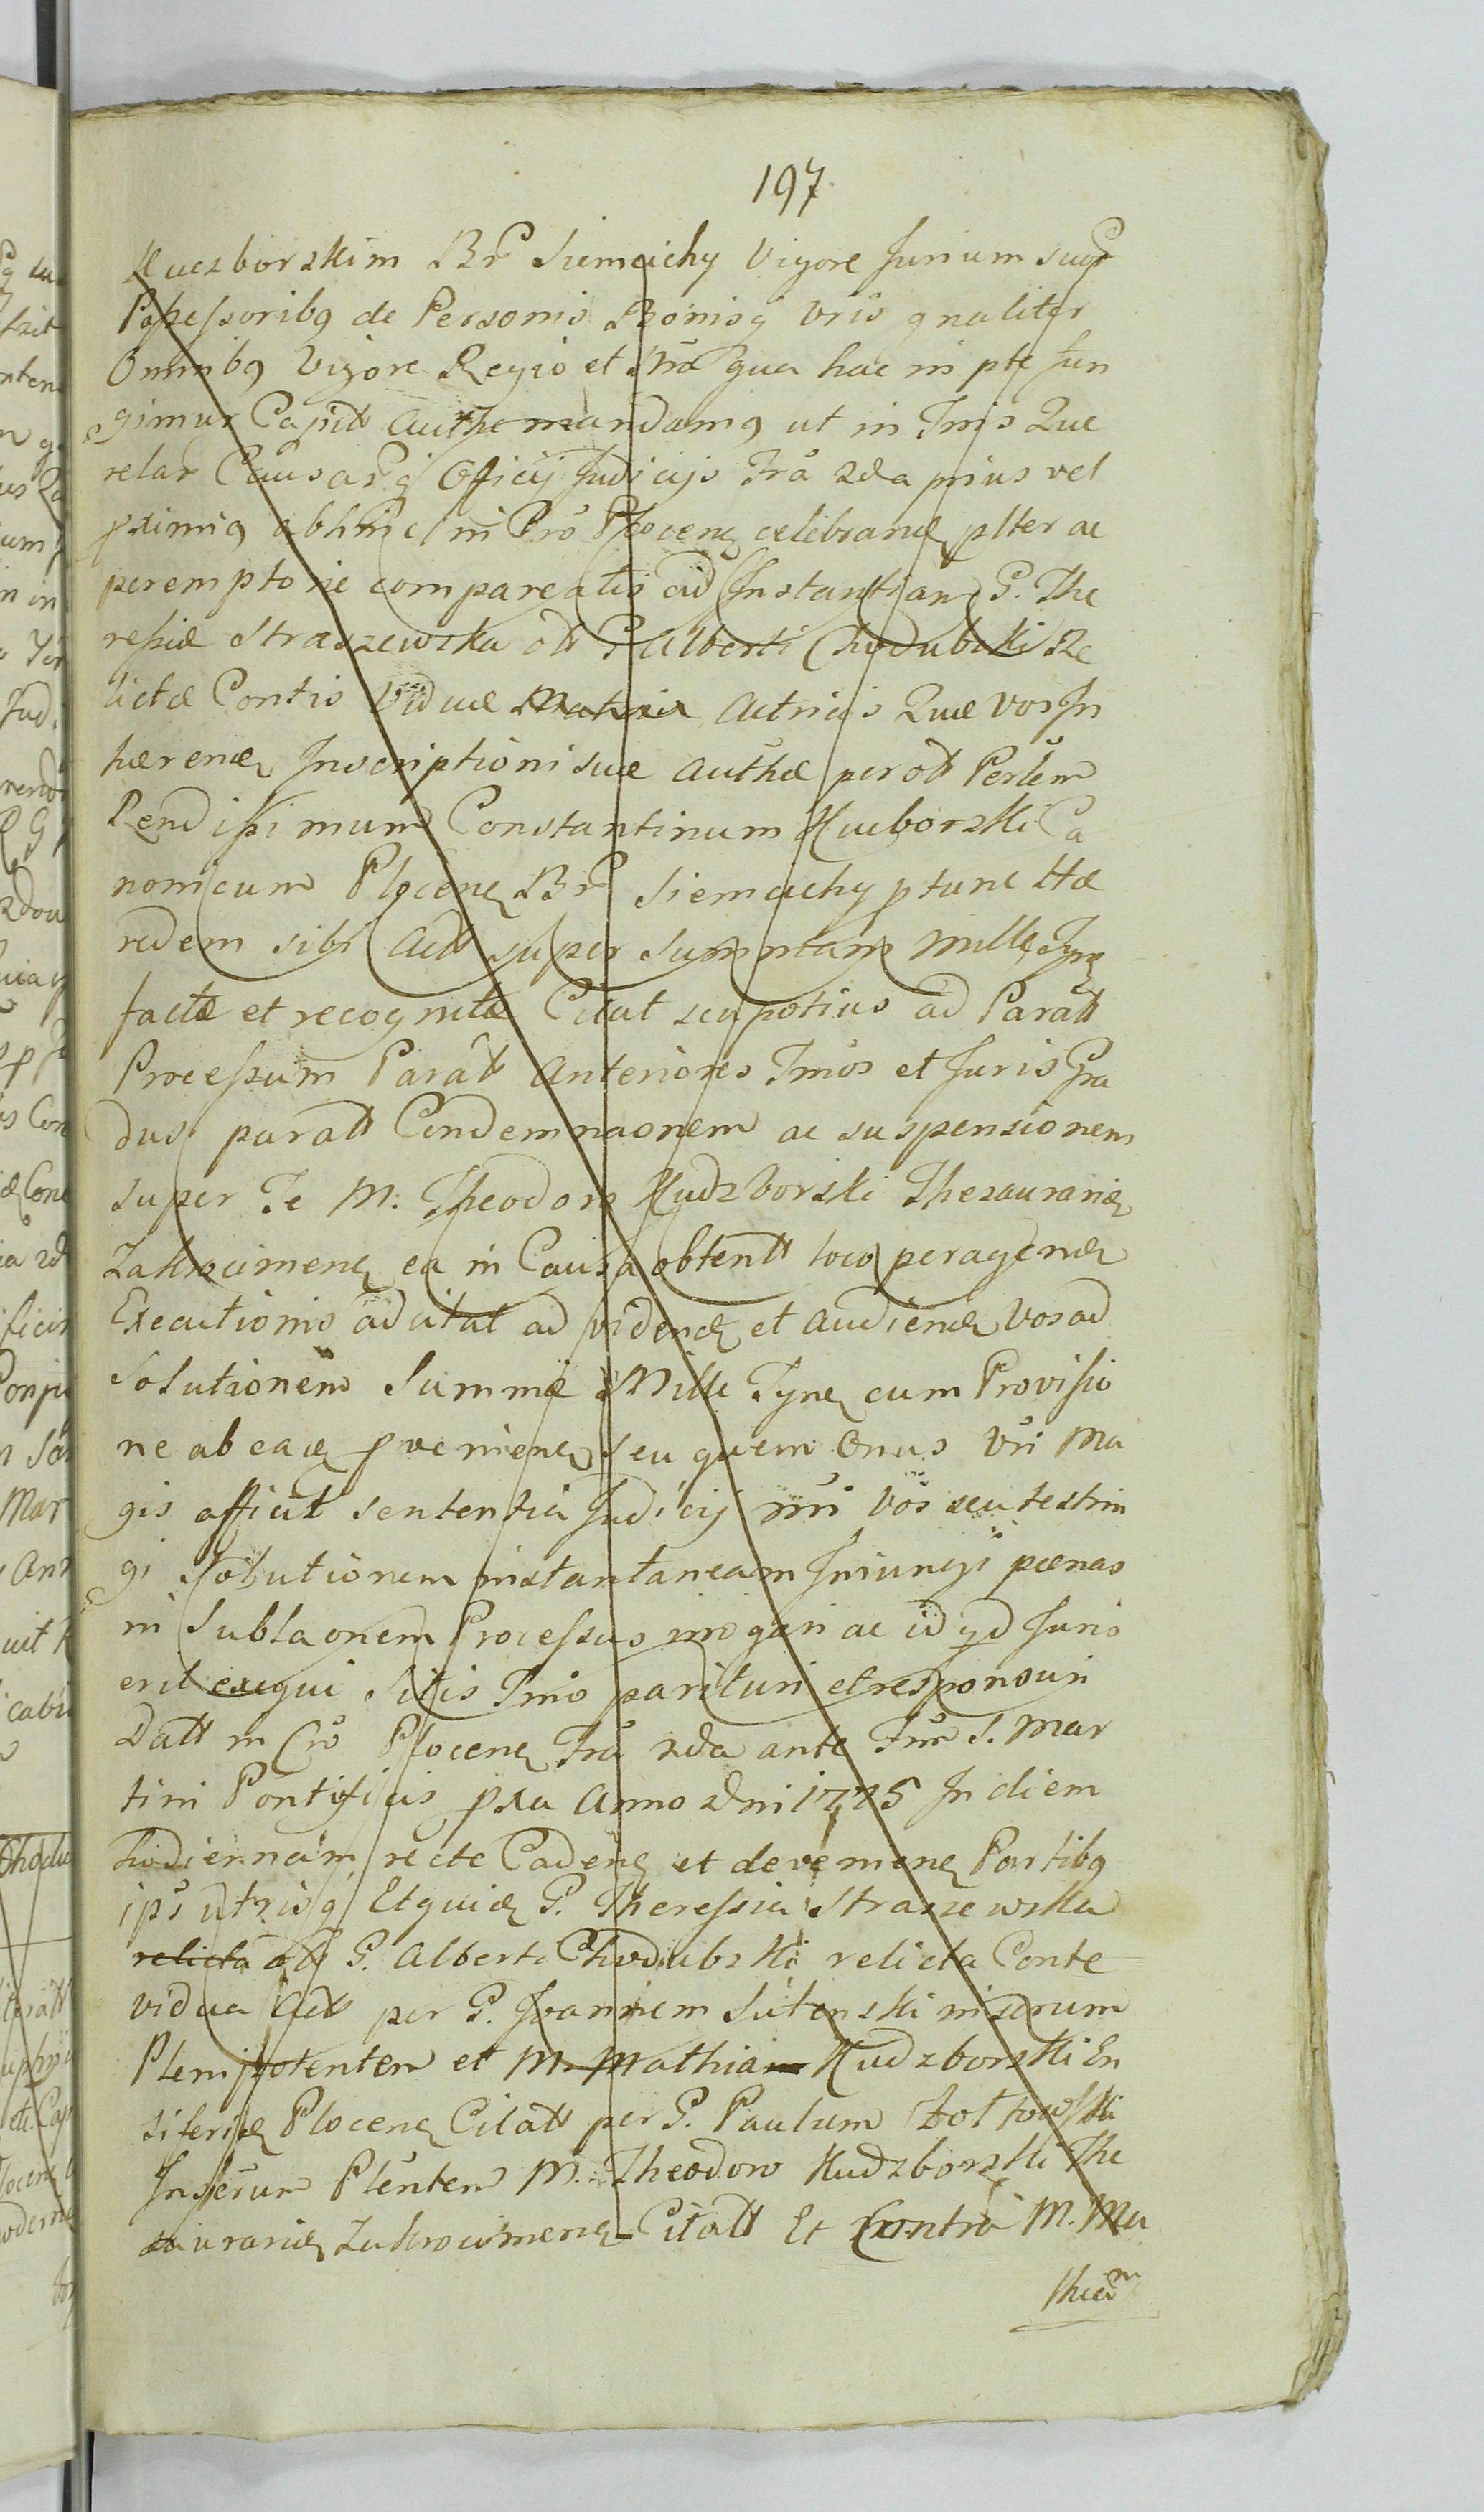 197
Kuczborskim Br. Siemiichy Vigore Jurium suor
Possessoribq de Personis Bonisq vris gnaliter
Omnibq Vigore Regio et Nra qua hac in pte fun
gimur Capit Authe mandamq ut in Tmis Que
relar Causarq Officij Judicijs fra 2da prius vel
pximiq abhinc in Cro Plocen celebran plter ac
peremptorie compareatis ad Instantiam G. The
ressiæ Straszewska ott G. Alberti Chodubski Re
lictæ Contis Viduæ Actricis Quæ vos In
hæren Inscriptioni suæ Authæ per ott Perlem
Rendissimum Constantinum Kucborski Ca
nonicum Plocen Br. Siemiichy ptunc Hæ
redem sibi Act super Summam mille Tyn
factæ et recognitæ Citat seu potius ad Paratt
Processum Paratt Anteriores Tmos et Juris Gra
dus paratt Condemnaonem ac suspensionem
super Te M: Theodoro Kudzborski Thesaurariæ
Zakrocimen ea in Causa obtentt loco peragen
Executionis adcitat ad viden et audien Vos ad
Solutionem Summæ Mille Tyn cum Provisio
ne ab eaq pvenien seu quem Onus vri Ma
gis afficit sententia Judicij nri vos seu testrin
gi Solutionem instantaneam Iniungi pænas
in Sublaonem Processus irrogari ac id qd Juris
erit exequi Sitis Tmo parituri et responsuri
Datt in Cro Plocen Fra 2da ante Fm S. Mar
tini Pontificis pxa Anno Dni 1775 In diem
hodiernam recte Caden et devenien Partibq
ips utrisq Et quia G. Theressia Straszewska
relicta ott G. Alberti Chodubski relicta Conte
vidua Act per G. Joannem Sutenski inserum
Plenipotentem et M. Mathiam Kudzborski En
siferiæ Plocen Citatt per G. Paulum Zottowski
Inserum Plentem M. Theodoro Kudzborski The
saurariæ Zakrocimen Citatt Et Contra M. Ma
thiam